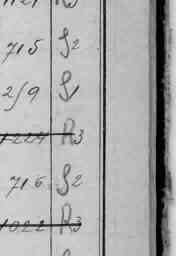 715 S2
259 S1
1224 R3
716 S2
1022 R3